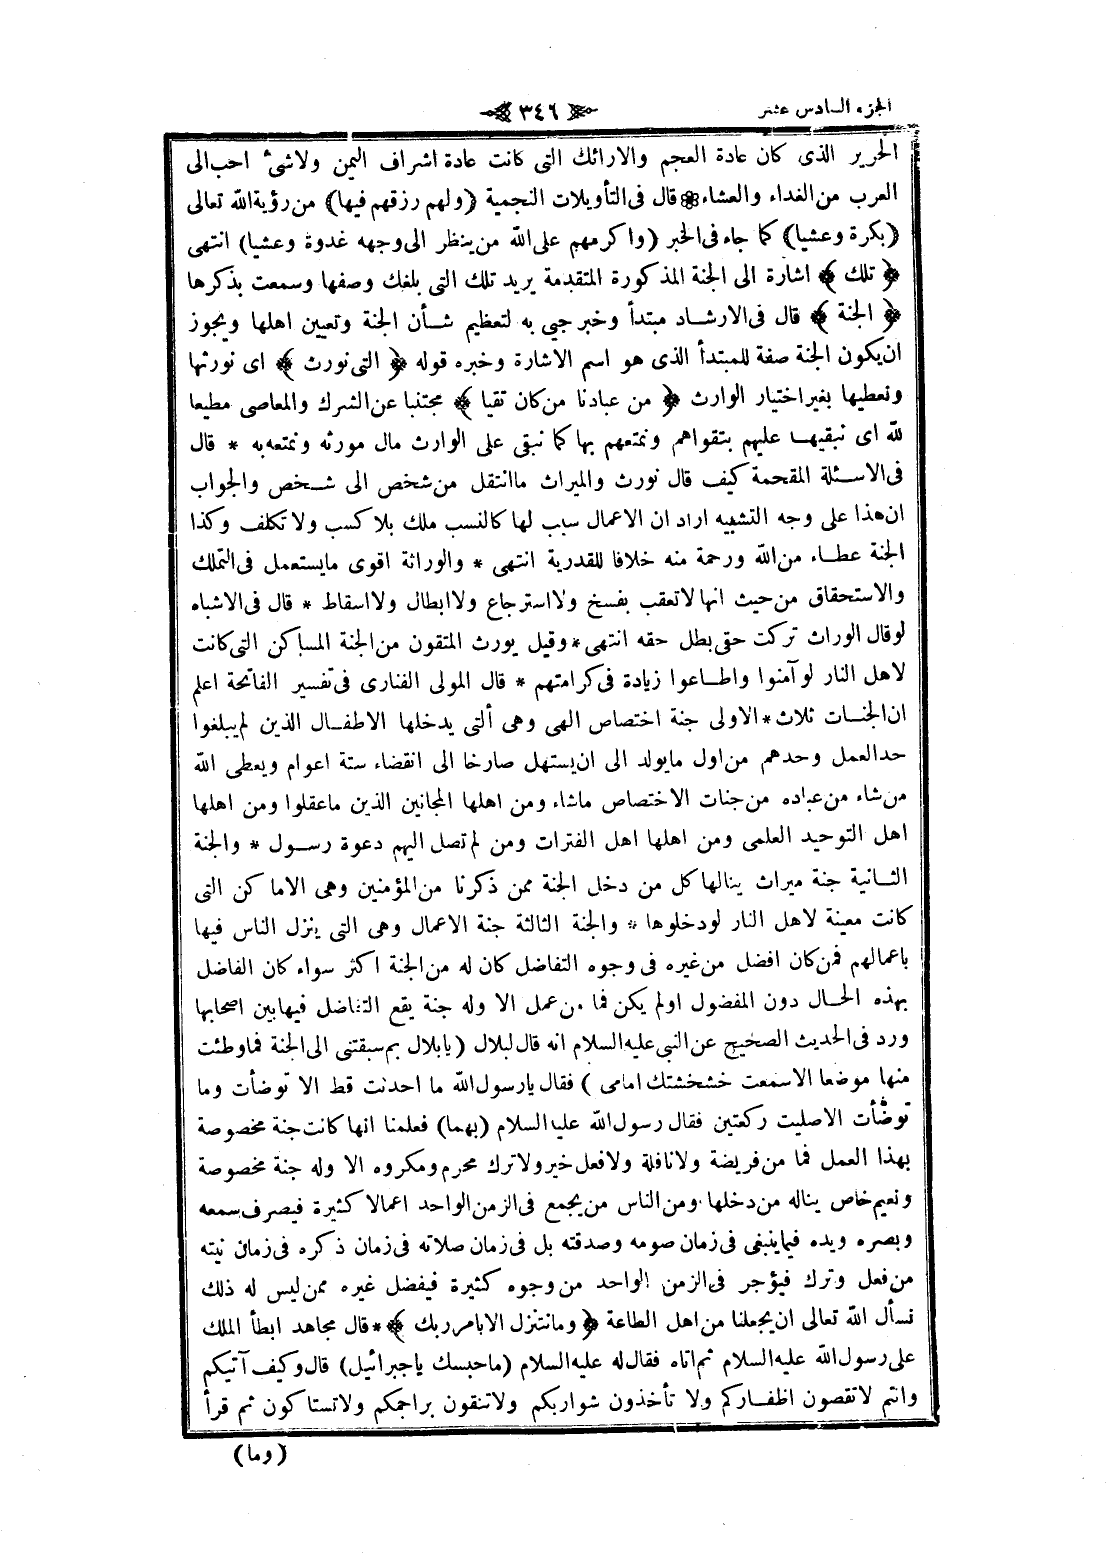 الجزء السادس عشر
٣٤٦
الحرير الذى كان عادة العجم والارائك التى كانت عادة اشراف اليمن ولاشئ احب الى
العرب من الغداء والعشاء ❀ قال فى التأويلات النجمية (ولهم رزقهم فيها) من رؤية الله تعالى
(بكرة وعشيا) كما جاء فى الخبر (واكرمهم على الله من ينظر الى وجهه غدوة وعشيا) انتهى
﴿ تلك ﴾ اشارة الى الجنة المذكورة المتقدمة يريد تلك التى بلغك وصفها وسمعت بذكرها
﴿ الجنة ﴾ قال فى الارشاد مبتدأ وخبر جيئ به لتعظيم شأن الجنة وتعيين اهلها ويجوز
ان يكون الجنة صفة للمبتدأ الذى هو اسم الاشارة وخبره قوله ﴿ التى نورث ﴾ اى نورثها
ونعطيها بغير اختيار الوارث ﴿ من عبادنا من كان تقيا ﴾ مجتنبا عن الشرك والمعاصى مطيعا
لله اى نبقيها عليهم بتقواهم ونمتعهم بها كما نبقى على الوارث مال مورثه ونمتعه به * قال
فى الاسئلة المقحمة كيف قال نورث والميراث ماانتقل من شخص الى شخص والجواب
ان هذا على وجه التشبيه اراد ان الاعمال سبب لها كالنسب ملك بلا كسب ولا تكلف وكذا
الجنة عطاء من الله ورحمة منه خلافا للقدرية انتهى * والوراثة اقوى مايستعمل فى التملك
والاستحقاق من حيث انها لاتعقب بفسخ ولا استرجاع ولا ابطال ولا اسقاط * قال فى الاشباه
لوقال الوراث تركت حقى بطل حقه انتهى * وقيل يورث المتقون من الجنة المساكن التى كانت
لاهل النار لو آمنوا واطاعوا زيادة فى كرامتهم * قال المولى الفنارى فى تفسير الفاتحة اعلم
ان الجنات ثلاث * الاولى جنة اختصاص الهى وهى ألتى يدخلها الاطفال الذين لم يبلغوا
حد العمل وحدهم من اول مايولد الى ان يستهل صارخا الى انقضاء ستة اعوام ويعطى الله
من شاء من عباده من جنات الاختصاص ماشاء ومن اهلها المجانين الذين ماعقلوا ومن اهلها
اهل التوحيد العلمى ومن اهلها اهل الفترات ومن لم تصل اليهم دعوة رسول * والجنة
الثانية جنة ميراث ينالها كل من دخل الجنة ممن ذكرنا من المؤمنين وهى الاماكن التى
كانت معينة لاهل النار لودخلوها * والجنة الثالثة جنة الاعمال وهى التى ينزل الناس فيها
باعمالهم فمن كان افضل من غيره فى وجوه التفاضل كان له من الجنة اكثر سواء كان الفاضل
بهذه الحال دون المفضول اولم يكن فما من عمل الا وله جنة يقع التفاضل فيها بين اصحابها
ورد فى الحديث الصحيح عن النبى عليه السلام انه قال لبلال (يابلال بم سبقتنى الى الجنة فماوطئت
منها موضعا الاسمعت خشخشتك امامى ) فقال يارسول الله ما احدثت قط الا توضأت وما
توضأت الاصليت ركعتين فقال رسول الله عليه السلام (بهما) فعلمنا انها كانت جنة مخصوصة
بهذا العمل فما من فريضة ولا نافلة ولا فعل خير ولا ترك محرم ومكروه الا وله جنة مخصوصة
ونعيم خاص يناله من دخلها ومن الناس من يجمع فى الزمن الواحد اعمالا كثيرة فيصرف سمعه
وبصره ويده فيما ينبغى فى زمان صومه وصدقته بل فى زمان صلاته فى زمان ذكره فى زمان نيته
من فعل وترك فيؤجر فى الزمن الواحد من وجوه كثيرة فيفضل غيره ممن ليس له ذلك
نسأل الله تعالى ان يجعلنا من اهل الطاعة ﴿ ومانتنزل الابامر ربك ﴾ * قال مجاهد ابطأ الملك
على رسول الله عليه السلام ثم اتاه فقال له عليه السلام (ماحبسك ياجبرائيل) قال وكيف آتيكم
وانتم لاتقصون اظفاركم ولا تأخذون شواربكم ولاتنقون براجمكم ولاتستاكون ثم قرأ
(وما)